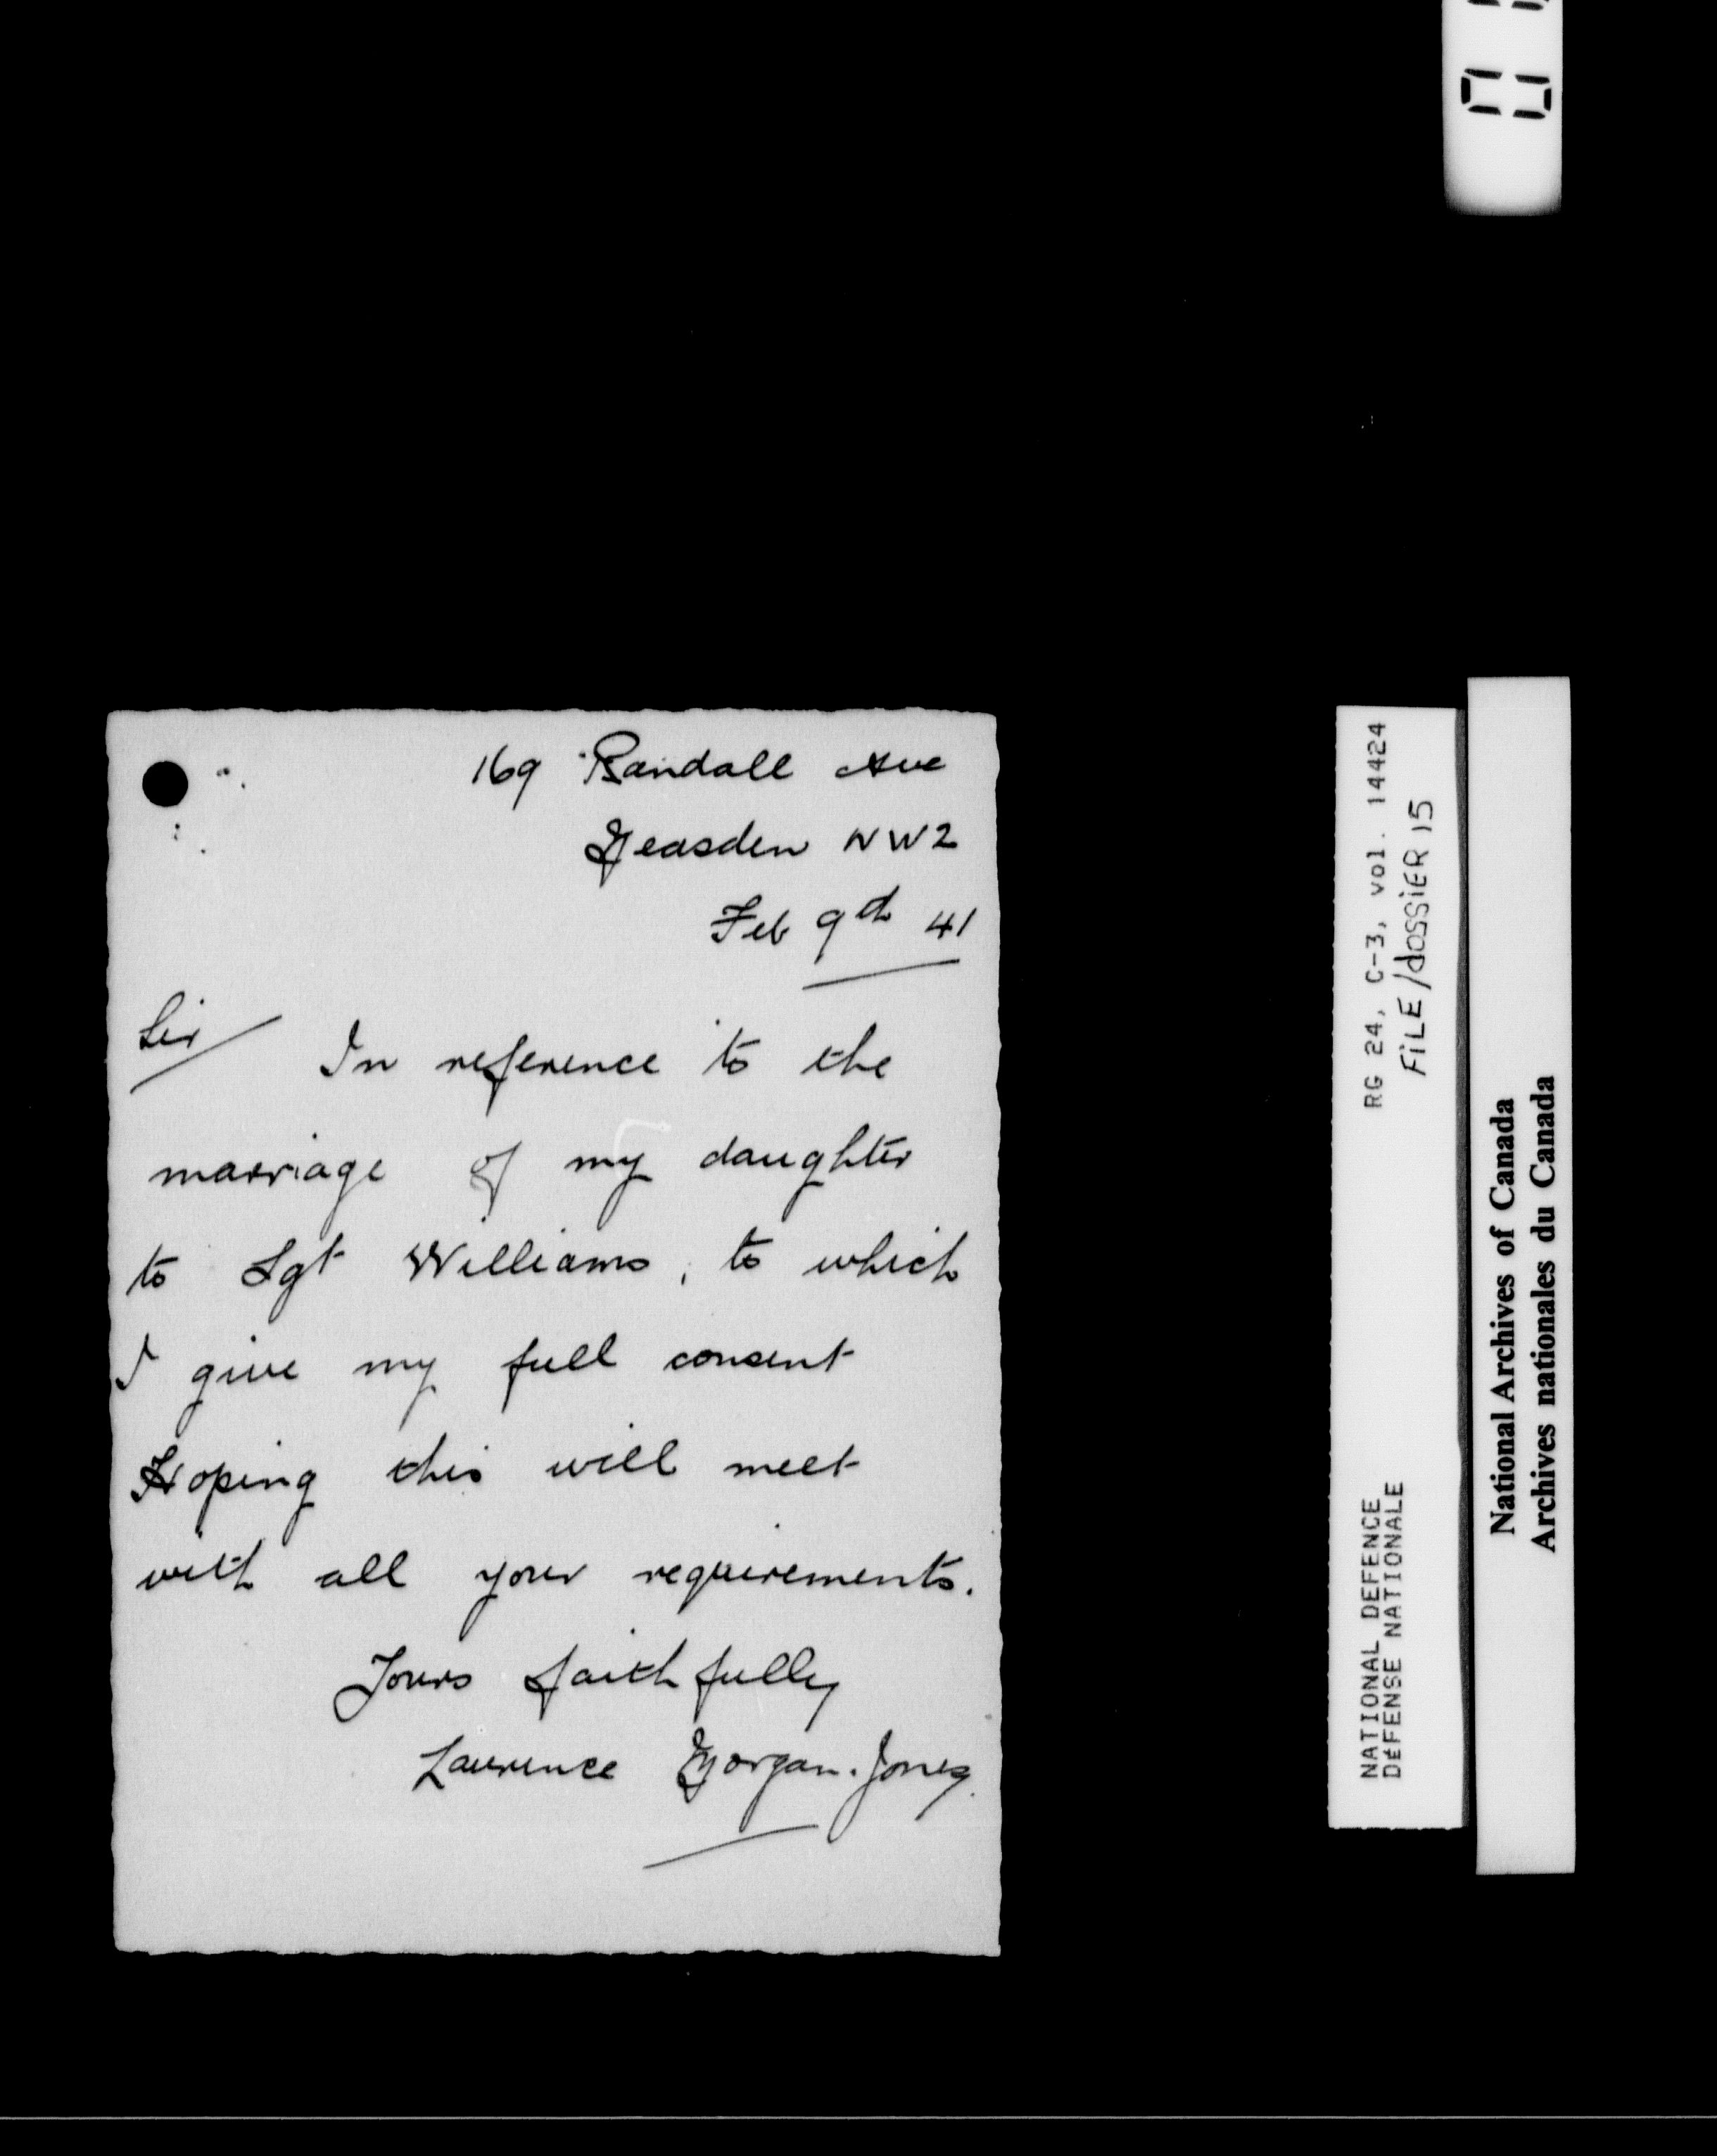 169 Randall Ave
Neasden NW2
Feb 9th 41
Sir/ In reference to the
marriage of my daughter
to Sgt Williams, to which
I give my full consent
Hoping this will meet
with all your requirements.
Yours faithfully
Laurence Morgan-Jones.
RG 24, C-3, vol. 14424
FiLE/dOSSiER 15
NATIONAL DEFENCE
DÉFENSE NATIONALE
National Archives of Canada
Archives nationales du Canada